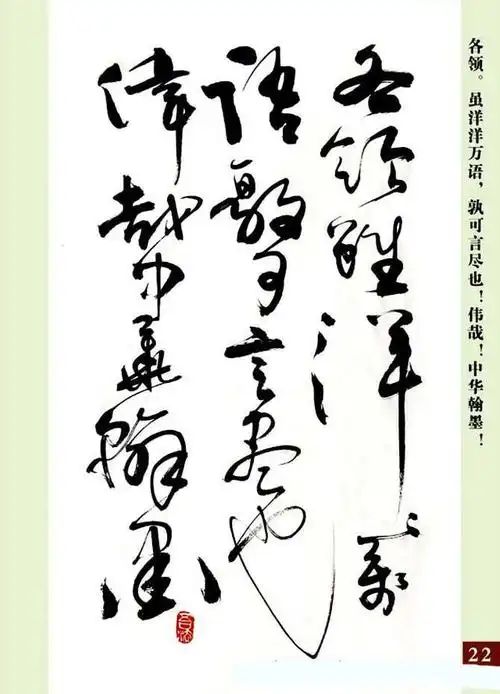 各领虽洋々万
语孰可言尽也
伟哉中华翰墨
各领。虽洋洋万语，孰可言尽也！伟哉！中华翰墨！
22